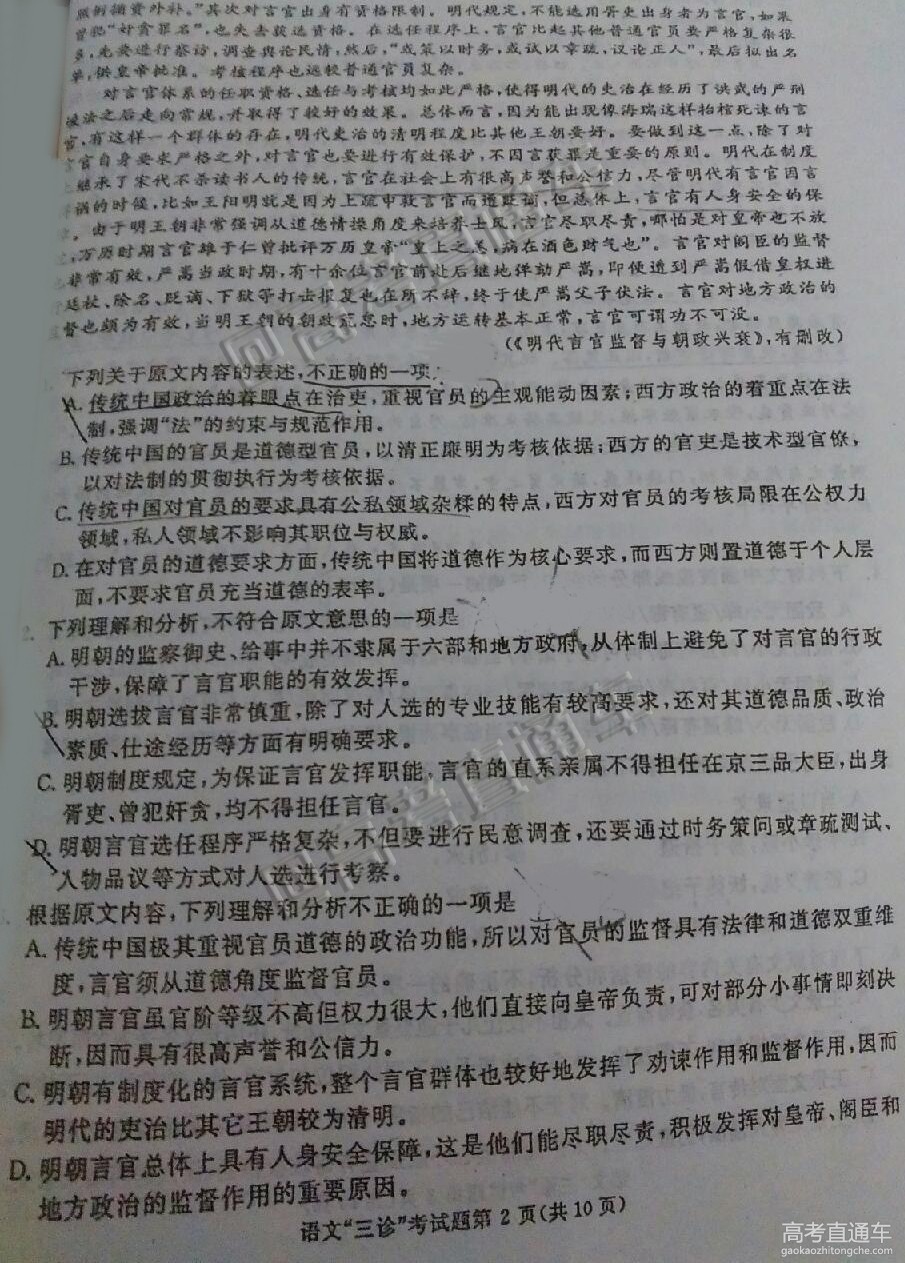 原例铟资外补。”其次对言官出身有资格限制。明代规定,不能选用胥吏出身者为言官,如果
曾犯“奸贪罪名”,也失去获选资格。在选任程序上,言官比起其他普通官员要严格复杂很
多,先要进行察访,调查舆论民情,然后,“或策以时务,或试以章疏,议论正人”,最后拟出名
单,供皇帝批准。考核程序也远较普通官员复杂。
对言官体系的任职资格、选任与考核均如此严格,使得明代的吏治在经历了洪武的严刑
峻法之后走向常规,并取得了较好的效果。总体而言,因为能出现像海瑞这样抬棺死谏的言
官,有这样一个群体的存在,明代吏治的清明程度比其他王朝要好。要做到这一点,除了对
官自身要求严格之外,对言官也要进行有效保护,不因言获罪是重要的原则。明代在制度
上继承了宋代不杀读书人的传统,言官在社会上有很高声誉和公信力,尽管明代有言官因言
祸的时候,比如王阳明就是因为上疏申救言官而遭贬谪,但总体上,言官有人身安全的保
。由于明王朝非常强调从道德情操角度来培养士民,言官尽职尽责,哪怕是对皇帝也不放
,万历时期言官雒于仁曾批评万历皇帝“皇上之恙,病在酒色财气也”。言官对阁臣的监督
非常有效,严嵩当政时期,有十余位言官前赴后继地弹劾严嵩,即使遭到严嵩假借皇权进
廷杖、除名、贬谪、下狱等打击报复也在所不辞,终于使严嵩父子伏法。言官对地方政治的
督也颇为有效,当明王朝的朝政荒怠时,地方运转基本正常,言官可谓功不可没。
(《明代言官监督与朝政兴衰》,有删改)
下列关于原文内容的表述,不正确的一项
A. 传统中国政治的着眼点在治吏,重视官员的主观能动因素;西方政治的着重点在法
制,强调“法”的约束与规范作用。
B. 传统中国的官员是道德型官员,以清正廉明为考核依据;西方的官吏是技术型官僚,
以对法制的贯彻执行为考核依据。
C. 传统中国对官员的要求具有公私领域杂糅的特点,西方对官员的考核局限在公权力
领域,私人领域不影响其职位与权威。
D. 在对官员的道德要求方面,传统中国将道德作为核心要求,而西方则置道德于个人层
面,不要求官员充当道德的表率。
2. 下列理解和分析,不符合原文意思的一项是
A. 明朝的监察御史、给事中并不隶属于六部和地方政府,从体制上避免了对言官的行政
干涉,保障了言官职能的有效发挥。
B. 明朝选拔言官非常慎重,除了对人选的专业技能有较高要求,还对其道德品质、政治
素质、仕途经历等方面有明确要求。
C. 明朝制度规定,为保证言官发挥职能,言官的直系亲属不得担任在京三品大臣,出身
胥吏、曾犯奸贪,均不得担任言官。
D. 明朝言官选任程序严格复杂,不但要进行民意调查,还要通过时务策问或章疏测试、
人物品议等方式对人选进行考察。
根据原文内容,下列理解和分析不正确的一项是
A. 传统中国极其重视官员道德的政治功能,所以对官员的监督具有法律和道德双重维
度,言官须从道德角度监督官员。
B. 明朝言官虽官阶等级不高但权力很大,他们直接向皇帝负责,可对部分小事情即刻决
断,因而具有很高声誉和公信力。
C. 明朝有制度化的言官系统,整个言官群体也较好地发挥了劝谏作用和监督作用,因而
明代的吏治比其它王朝较为清明。
D. 明朝言官总体上具有人身安全保障,这是他们能尽职尽责,积极发挥对皇帝、阁臣和
地方政治的监督作用的重要原因。
语文“三诊”考试题第 2 页(共 10 页)
高考直通车
高考直通车
高考直通车
高考直通车
gaokaozhitongche.com